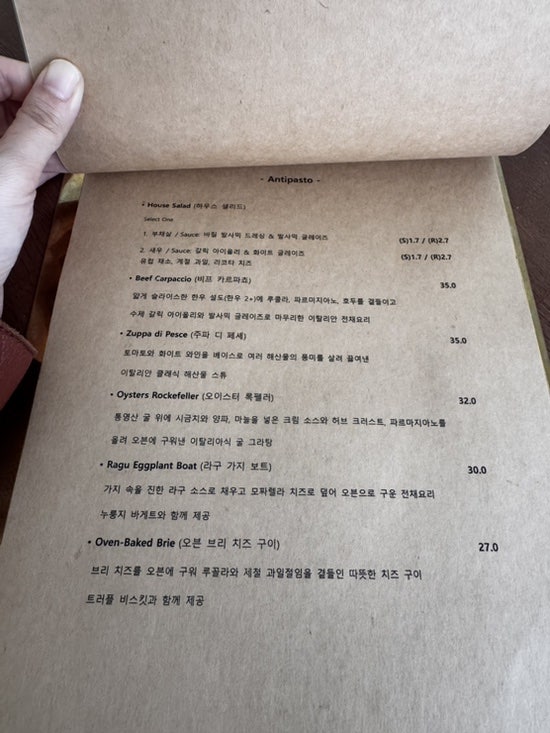 - Antipasto -
• House Salad (하우스 샐러드)
Select One
1. 부채살 / Sauce: 바질 발사믹 드레싱 & 발사믹 글레이즈 (S)1.7 / (R)2.7
2. 새우 / Sauce: 갈릭 아이올리 & 화이트 글레이즈 (S)1.7 / (R)2.7
유럽 채소, 계절 과일, 리코타 치즈
• Beef Carpaccio (비프 카르파쵸) 35.0
얇게 슬라이스한 한우 설도(한우 2+)에 루꼴라, 파르미지아노, 호두를 곁들이고
수제 갈릭 아이올리와 발사믹 글레이즈로 마무리한 이탈리안 전채요리
• Zuppa di Pesce (주파 디 페셰) 35.0
토마토와 화이트 와인을 베이스로 여러 해산물의 풍미를 살려 끓여낸
이탈리안 클래식 해산물 스튜
• Oysters Rockefeller (오이스터 록펠러) 32.0
통영산 굴 위에 시금치와 양파, 마늘을 넣은 크림 소스와 허브 크러스트, 파르마지아노를
올려 오븐에 구워낸 이탈리아식 굴 그라탕
• Ragu Eggplant Boat (라구 가지 보트) 30.0
가지 속을 진한 라구 소스로 채우고 모짜렐라 치즈로 덮어 오븐으로 구운 전채요리
누룽지 바게트와 함께 제공
• Oven-Baked Brie (오븐 브리 치즈 구이) 27.0
브리 치즈를 오븐에 구워 루꼴라와 제철 과일절임을 곁들인 따뜻한 치즈 구이
트러플 비스킷과 함께 제공